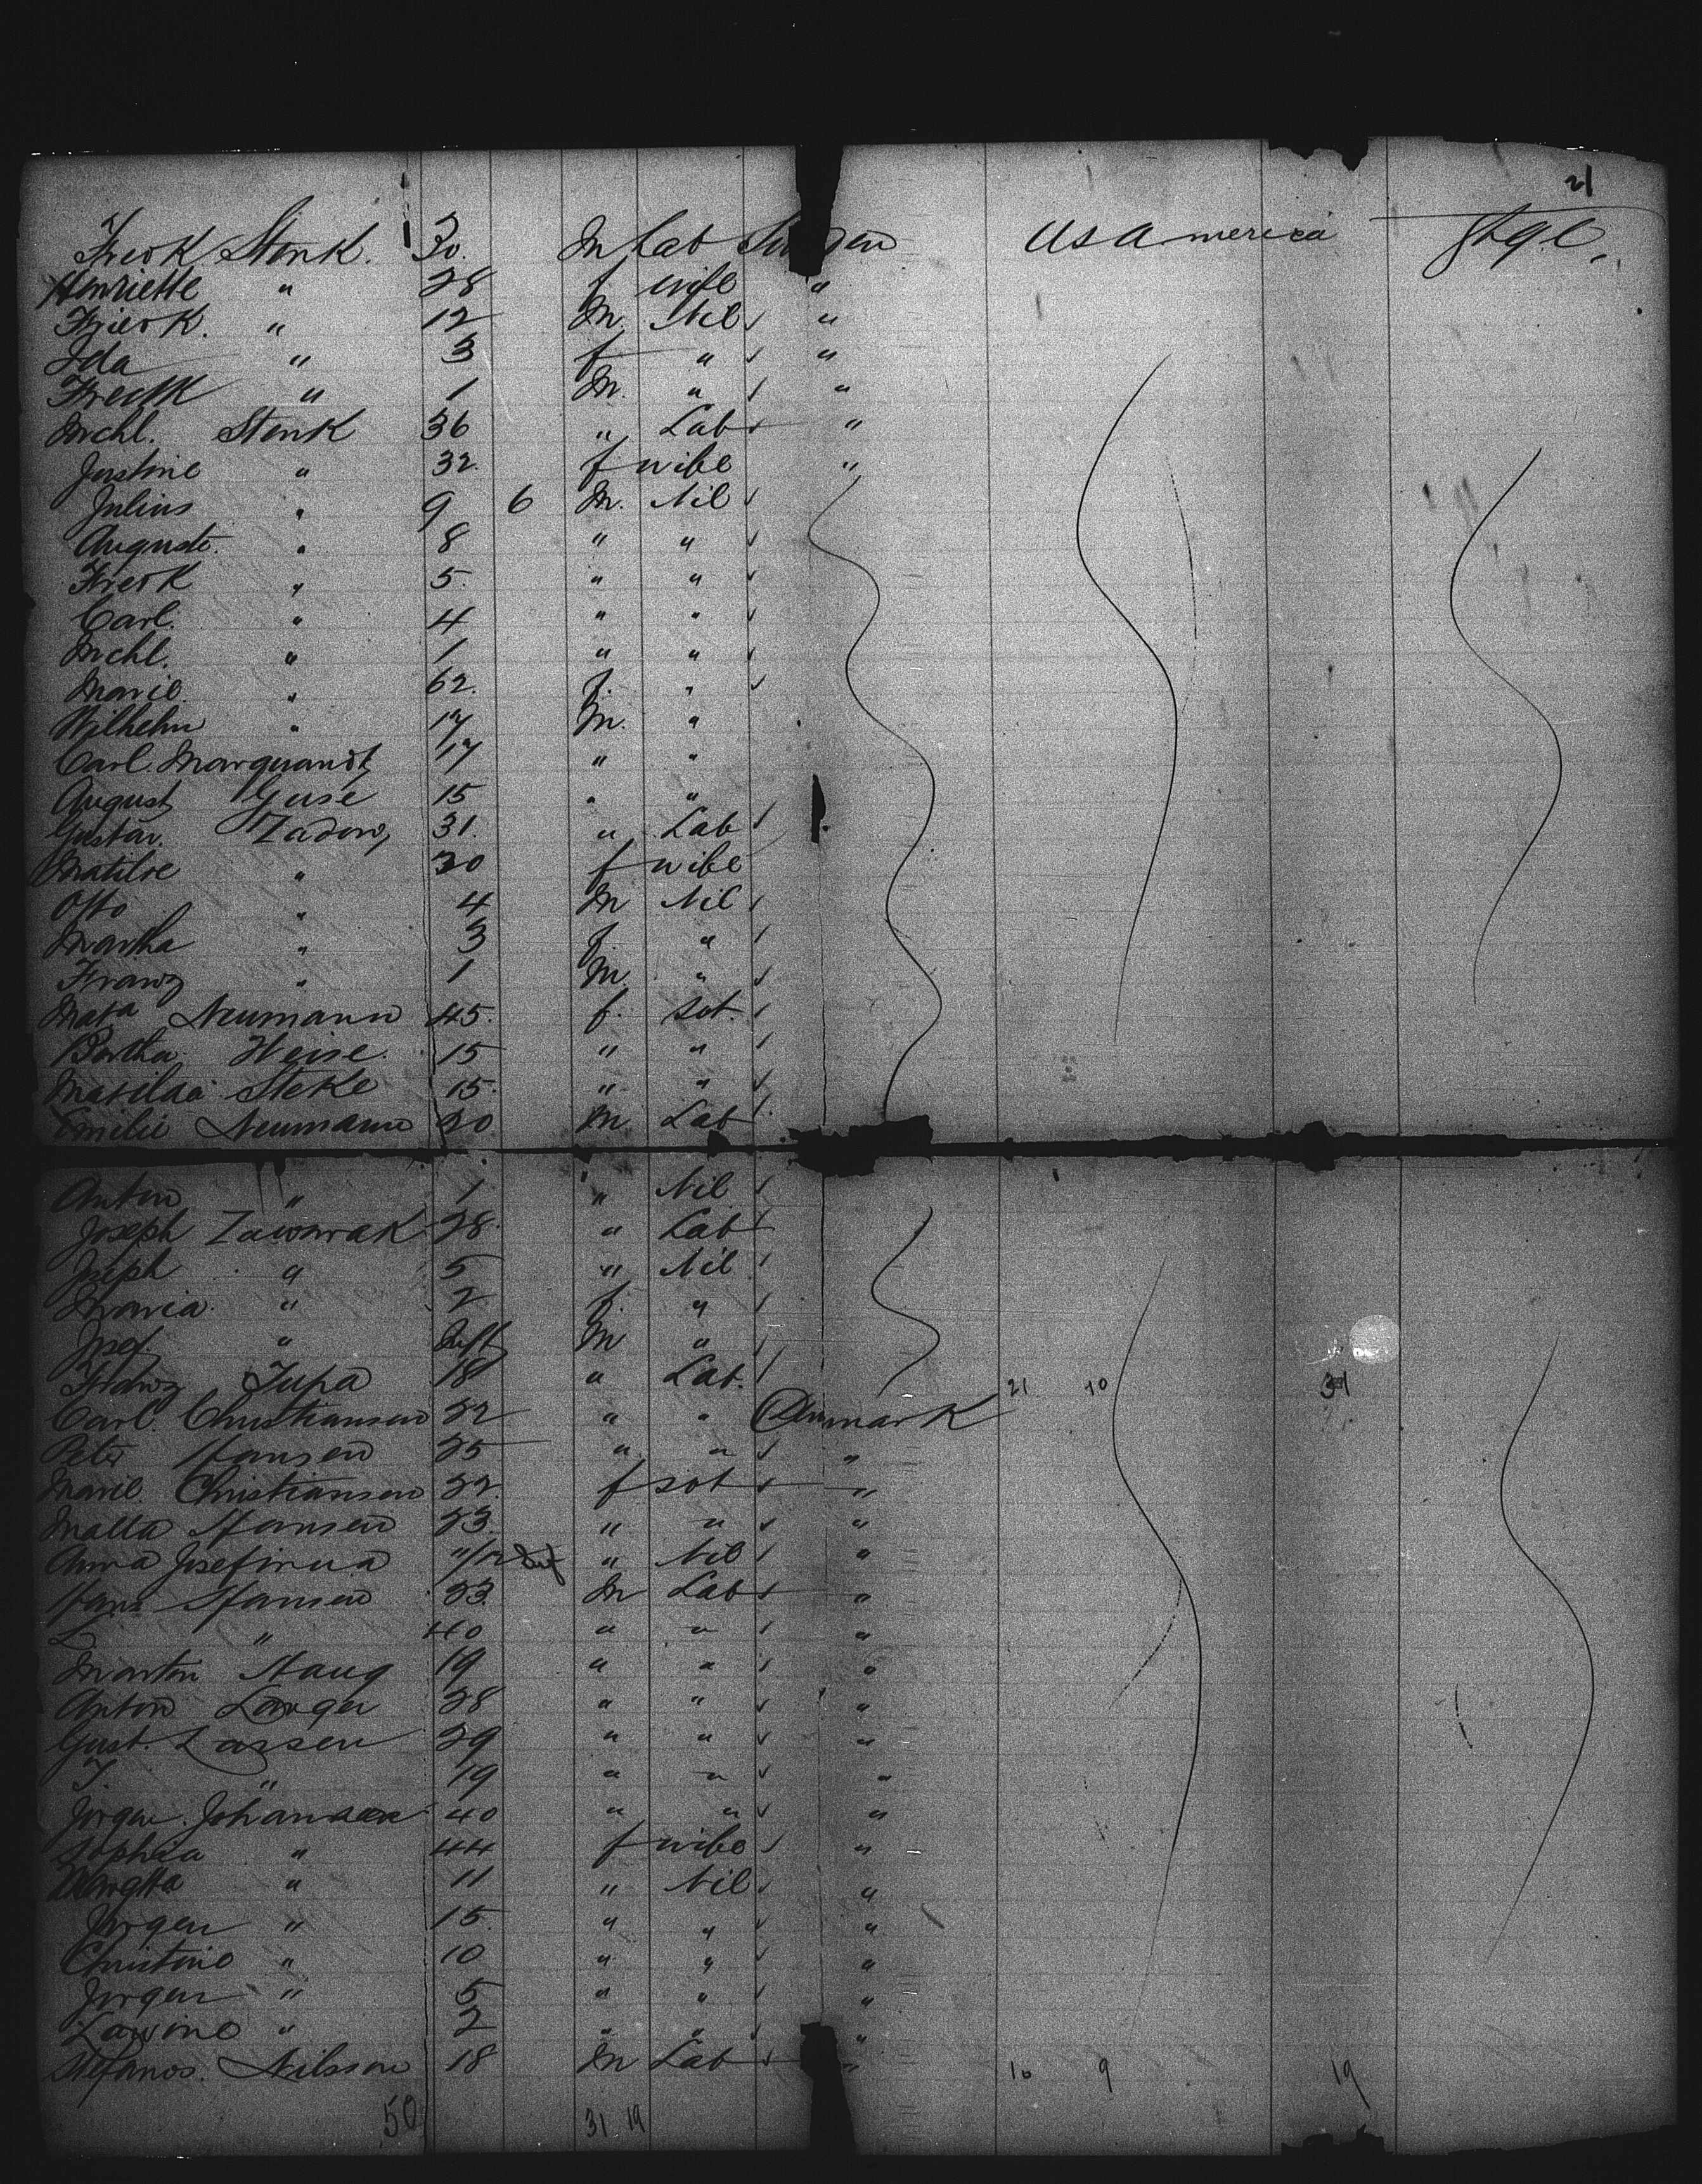 21
Fredk Stenk. 30. M Lab Sweden USAmerica Stge.
Henriette " 28 f wife "
Fredk. " 12 M. Nil "
Ida " 3 f " "
Fredk " 1 M. " "
Mchl. Stenk 36 " Lab "
Justine " 32. f wife "
Julius " 9 6 M. Nil
August. " 8 " "
Fredk " 5. " "
Carl. " 4 " "
Mchl. " 1 " "
Marie " 62. f. "
Wilhelm " 17 M. "
Carl. Marquandt 17 " "
August Guse 15 " "
Gustav. Zadow, 31. " Lab
Matilde " 30 f wife
Otto " 4 M Nil
Martha " 3 f. "
Franz " 1 M. "
Neumann 45. f. "
Bertha. Heise. 15 " "
Matilda Steke 15. " "
Emilie Neumann 20 M Lab
Anton " 1 " Nil
Joseph Zawarak 28. " Lab
Joseph " 5 " Nil
Maria " 2 f. "
Josef. " M "
Franz Tupa 18 " Lab. 21 10 31
Carl. Christiansen 22 " " Denmark
Peter Hansen 25 " " "
Marie. Christiansen 22. f "
Hansen 23. " " "
Anna Josefinna 11/12 " Nil "
Hans Hansen 23. M Lab "
L " 40 " " "
Martin Haug 19 " " "
Anton Langer 28 " " "
Gust. Lassen 29 " " "
" 19 " " "
Jorgen. Johansen 40 " " "
Sophia " 44 f wife "
" 11 " Nil "
Jorgen " 15. " " "
Christine " 10 " " "
Jorgen " 5 " " "
" 2 " " "
Nilsson 18 M Lab " 10 9 19
50 31 19